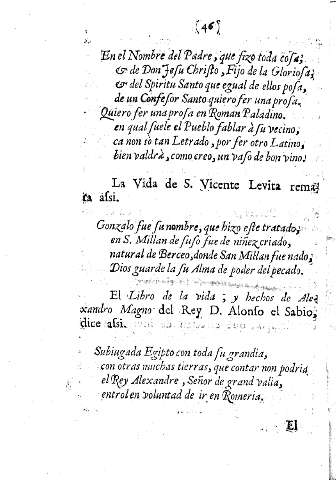 (46)
En el Nombre del Padre, que fizo toda cosa;
& de Don Jesu Christo, Fijo de la Gloriosa;
& del Spiritu Santo que egual de ellos posa,
de un Confesor Santo quiero fer una prosa.
Quiero fer una prosa en Roman Paladino.
en qual suele el Pueblo fablar à su vecino,
ca non iò tan Letrado, por fer otro Latino,
bien valdrà, como creo, un vaso de bon vino.
La Vida de S. Vicente Levita rema-
ta assi.
Gonzalo fue su nombre, que hizo este tratado,
en S. Millan de suso fue de niñez criado,
natural de Berceo, donde San Millan fue nado,
Dios guarde la su Alma de poder del pecado.
El Libro de la vida, y hechos de Ale-
xandro Magno del Rey D. Alonso el Sabio,
dice assi.
Subiugada Egipto con toda su grandia,
con otras muchas tierras, que contar non podria
el Rey Alexandre, Señor de grand valia,
entrol en voluntad de ir en Romeria.
El